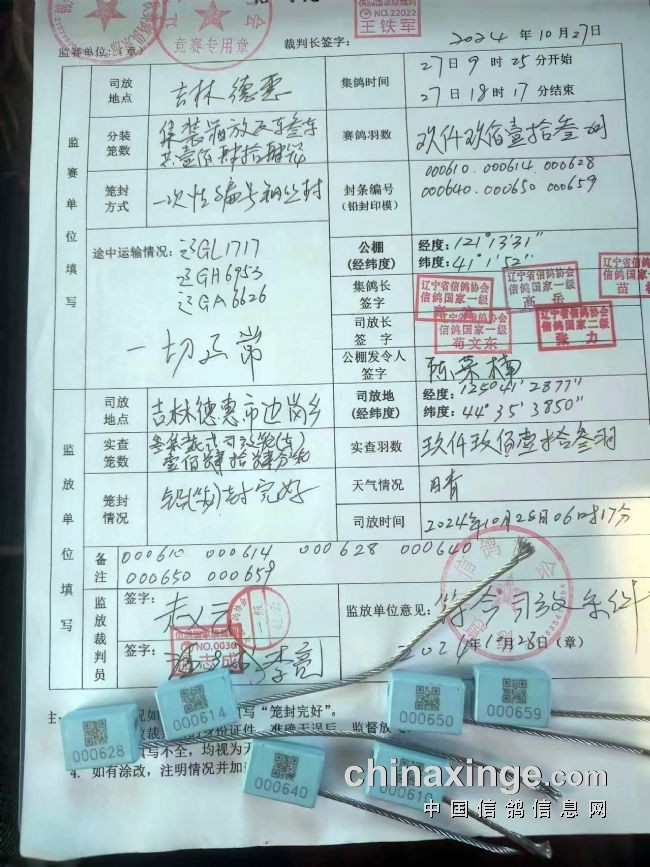 竞赛专用章
NO.22022
王铁军
监赛单位:(章)
裁判长签字:
2024年10月27日
监赛单位填写
司放地点
吉林德惠
集鸽时间
27日9时25分开始
27日18时17分结束
分装笼数
赛鸽羽数
玖仟玖佰壹拾叁羽
笼封方式
一次性编号钢丝封
封条编号(铅封印模)
000610.000614.000628
000640.000650 000659
途中运输情况:
辽GL1717
辽GH6953
辽GA6626
一切正常
公棚(经纬度)
经度:121°13'31"
纬度:41°1'52"
集鸽长签字
辽宁省信鸽协会
信鸽国家一级
辽宁省信鸽协会
信鸽国家一级
高岳
司放长签字
信鸽国家一级
苟文东
辽宁省信鸽协会
信鸽国家二级
张力
公棚发令人签字
陈荣楠
监放单位填写
司放地点
吉林德惠市边岗乡
司放地(经纬度)
经度:125°41'2877"
纬度:44°35'3850"
实查笼数
实查羽数
玖仟玖佰壹拾叁羽
笼封情况
铅(笼)封完好
天气情况
晴
司放时间
2024年10月28日06时17分
备注
000610 000614 000628 000640
000650 000659
监放裁判员
签字:
签字:
NO.0036
李亮
监放单位意见:
符合司放条件
2024年10月28日(章)
写"笼封完好"。
填写不全,均视为无
4. 如有涂改,注明情况并加盖
000614
000650
000659
000628
000640
000610
chinaxinge.com
中国信鸽信息网